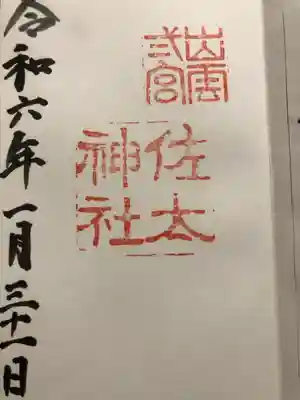 出雲
弍宮
佐太
神社
令和六年一月三十一日